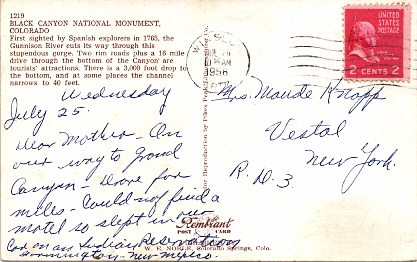 1219
BLACK CANYON NATIONAL MONUMENT,
COLORADO
First sighted by Spanish explorers in 1765, the
Gunnison River cuts its way through this
stupendous gorge. Two rim roads plus a 16 mile
drive through the bottom of the Canyon are
tourists' attractions. There is a 3,000 foot drop to
the bottom, and at some places the channel
narrows to 40 feet.
Wednesday
July 25.
Dear Mother - On
our way to Grand
Canyon - Drove for
miles - Could not find a
motel so slept in our
Car on an Indian Reservation
Farmington - New Mexico.
Color Reproduction by
Rembrant
POST CARD
W. E. NOBLE, Colorado Springs, Colo.
1956
UNITED
STATES
POSTAGE
2 CENTS 2
Mrs. Maude Knapp
Vestal
New York.
R. D. 3.